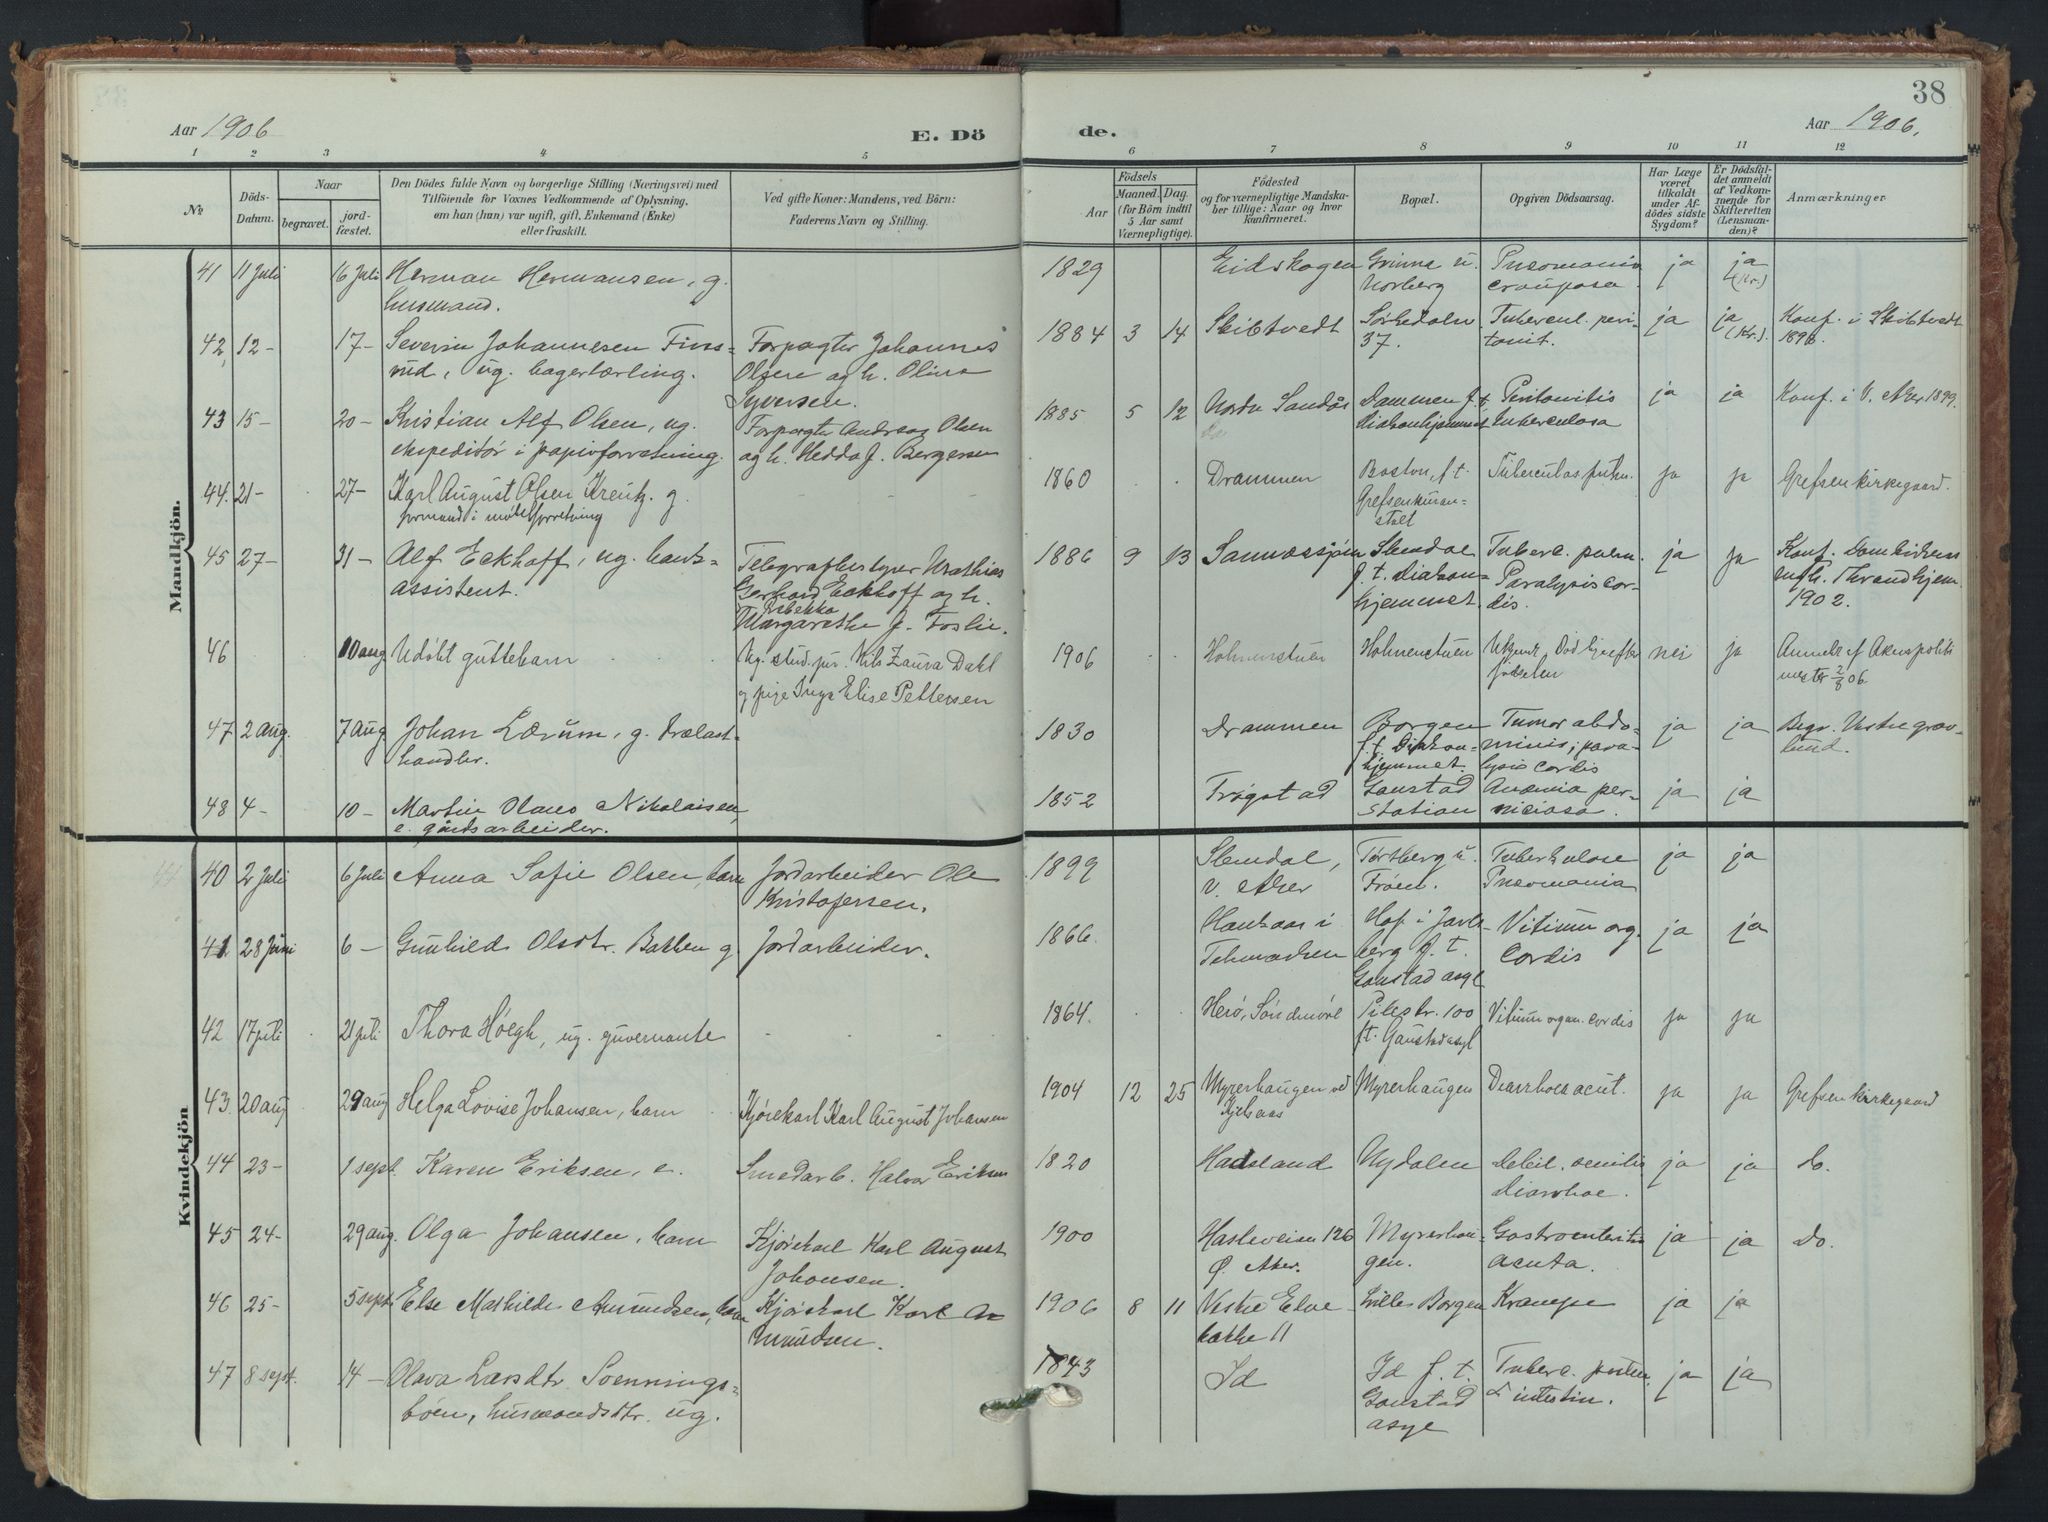 38
Aar 1906
E. Dö
de.
Aar 1906.
1 2 3 4 5 6 7 8 9 10 11 12
Nr.
Döds-
Datum.
Naar
begravet.
jord-
fæstet.
Den Dödes fulde Navn og borgerlige Stilling (Næringsvei) med
Tilföiende for Voxnes Vedkommende af Oplysning,
om han (hun) var ugift, gift, Enkemand (Enke)
eller fraskilt.
Ved gifte Koner: Mandens, ved Börn:
Faderens Navn og Stilling.
Födsels
Aar
Maaned.
Dag.
(for Börn indtil
5 Aar samt
Værnepligtige).
Födested
og for værnepligtige Mandska-
ber tillige: Naar og hvor
konfirmeret.
Bopæl.
Opgiven Dödsaarsag.
Har Læge
været
tilkaldt
under Af-
dödes sidste
Sygdom?
Er Dödsfal-
det anmeldt
af Vedkom-
mende for
Skifteretten
(Lensman-
den)?
Anmærkninger
Mandkjön.
41 11 Juli 16 Juli Herman Hermansen, g. 1829 Eidskogen Grinna u. Pneomonia ja ja
husmand. Norberg crouposa. (Kr.)
42 12- 17- Severin Johannesen Fins- Forpagter Johannes 1884 3 14 Skibtvedt Sørkedalen Tubercul. peri- ja ja Konf. i Skibtvedt
rud, ug. bagerlærling. Olsen og h. Oline 37. tonit. (Kr.). 1898.
Syversen.
43 15- 20- Kristian Alf Olsen, ug. Forpagter Andreas Olsen 1885 5 12 Nordre Sandås Dammen f.t. Peritonitis ja ja Konf. i V. Aker 1899.
ekspeditør i papirforretning. og h. Hedda f. Bergersen Diakonhjemmet tuberculosa
44. 21- 27- Karl August Olsen Kreutz. g. 1860 Drammen Boston, f.t. Tuberculos. pulm. ja ja Grefsen kirkegaard.
formand i møbelforretning Grefsenkuran-
stalt
45 27- 31- Alf Eckhoff, ug. bank- Telegrafbestyrer Mathias 1886 9 13 Sannessjøen Slemdal Tuberc. pulm. ja ja Konf. Domkirkens
assistent. Gerhard Eckhoff og h. f.t. Diakon- Paralysis cor- mgh. Thrandhjem
Rebekka hjemmet. dis. 1902.
Margarethe f. Foslie.
46 10 aug Udøbt guttebarn Ug. stud. jur. Nils Zaura Dahl 1906 Holmenstuen Holmenstuen Ukjend. Død lige efter nei ja Anmeldt af Akers politi
og pige Inga Elise Pettersen fødselen mester 2/8 06.
47 2 aug. 7 aug Johan Lærum, g. trælast- 1830 Drammen Borgen Tumor abdo- ja ja Begr. Vestre grav-
handler. f.t. Diakon- minis, para- lund.
hjemmet. lysis cordis
48 4- 10- Martin Olaus Nikolaisen, 1852 Trøgstad Gaustad Anæmia per- ja ja
e. gårdsarbeider. station niciosa.
Kvindekjön
40 2 Juli 6 Juli Anna Sofie Olsen, barn Jordarbeider Ole 1899 Slemdal, Tørtberg u. Tuberkulose ja ja
Kristofersen. V. Aker Frøen. Pneomonia
41 28 Juni 6- Gunhild Olsdtr. Bakken g. Jordarbeider. 1866. Haukaas i Hof i Jarls- Vitium org. ja ja
Telemarken berg f.t. Cordis
Gaustad asyl
42 17 juli 21 juli Thora Høegh, ug. guvernante 1864. Herø, Søndmøre Pilestr. 100 Vitium organ. cordis ja ja
f.t. Gaustadasyl
43. 20 aug 29 aug Helga Lovise Johansen, barn Kjørekarl Karl August Johansen 1904 12 25 Myrerhaugen ved Myrerhaugen Diarrhoea acut. ja ja Grefsen kirkegaard
Kjelsaas
44 23- 1 sept. Karen Eriksen, e. Smedarb. Halvor Eriksen 1820 Hadeland Nydalen Debil. senilis ja ja Do.
Diarrhoe.
45 24- 29 aug. Olga Johansen, barn Kjørekarl Karl August 1900 Hasleveien 126 Myrerhau- Gastroenteritis ja ja Do.
Johansen. Ø. Aker. gen. acuta.
46 25- 5 sept. Else Mathilde Amundsen, barn Kjørekarl Karl A- 1906 8 11 Vestre Elve Lilles Borgen Krampe ja ja
mundsen. bakke 11
47 8 sept. 14- Olava Larsdtr. Svennings- 1843 Id Id f.t. Tuberc. pulm. ja ja
bøen, husmandsdtr. ug. Gaustad & intestin.
asyl